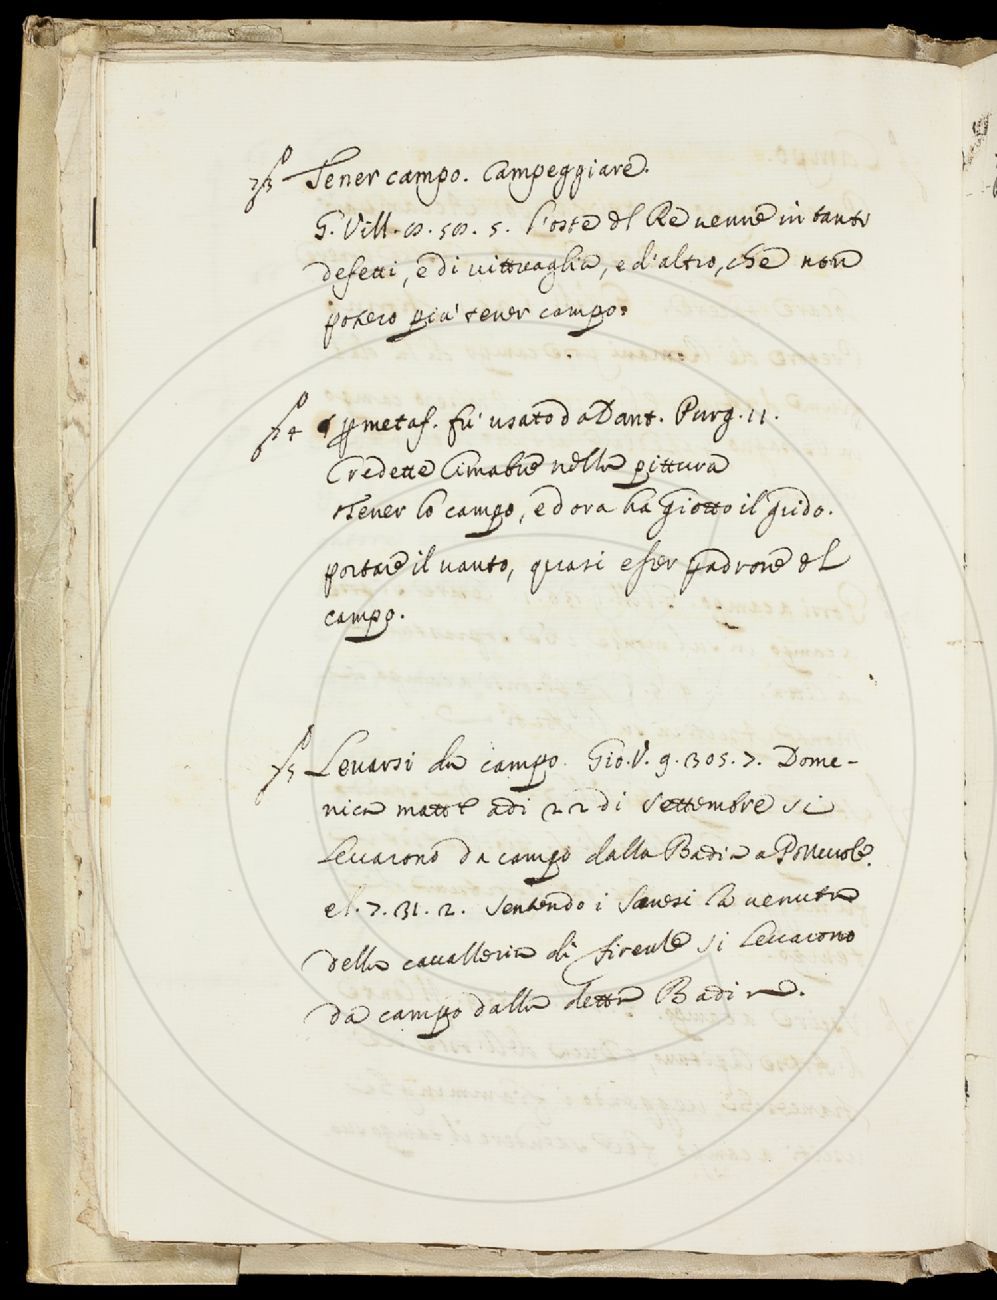 Tener campo. Campeggiare.
G. Vill. 8. 58. 5. l'oste dl Re uenne in tanti
defetti, e di uittuaglia, e d'altro, che non
potero più tener campo.
§ 4 metaf. fu' usato da Dant. Purg. 11.
Credette Cimabue nella pittura
Tener lo campo, ed ora ha Giotto il grido.
portare il uanto, quasi esser padrone dl
campo.
§ 5 Leuarsi da campo. Gio. V. 9. 305. 7. Dome-
nica matt. adi 22 di Settembre si
Leuarono da campo dalla Badia a
el. 7. 31. 2. Sentendo i Sanesi la uenuta
della caualleria di firenze si Leuarono
da campo dalla detta Badia.